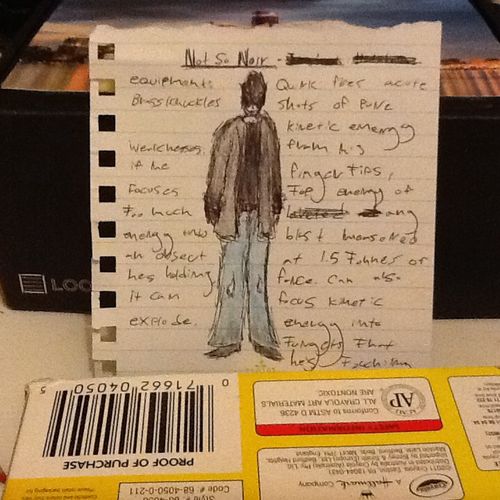 Not So Noir -
equipment:
Brassknuckles
Weaknesses:
if he
focuses
too much
energy into
an object
hes holding
it can
explode.
Quick fires acute
shots of pure
kinetic energy
from his
finger tips,
Top energy of
any
blast measured
at 1.5 Tonnes of
force. Can also
focus kinetic
energy into
hes touching
LOG
0 71662 04050 5
PROOF OF PURCHASE
Code # 68-4050-0-211
SAFETY INFORMATION
AP
ALL CRAYOLA ART MATERIALS
ARE NONTOXIC
Conforms ASTM D 4236
A Hallmark Company